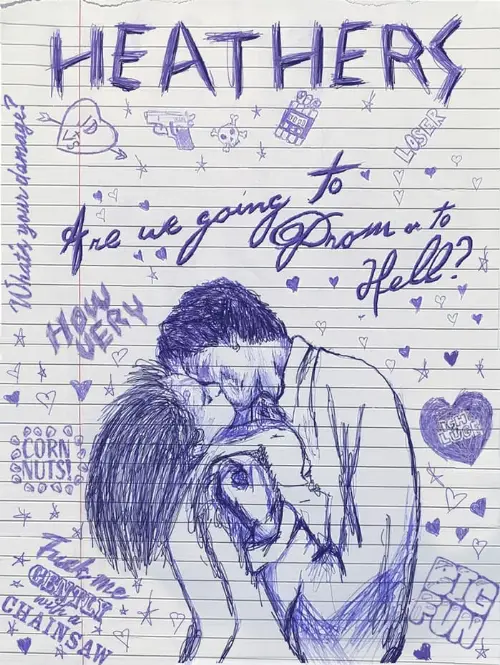 HEATHERS
What's your damage?
LOSER
Are we going to
Prom or to
Hell?
HOW
VERY
CORN
NUTS!
Fuck me
GENTLY
with a
CHAINSAW
BIG
FUN